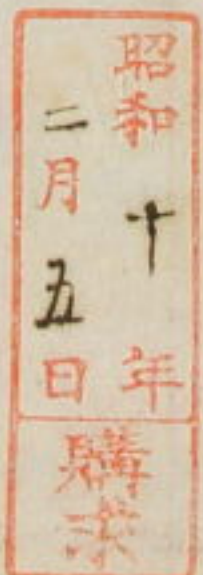 昭和十年
二月五日
購求